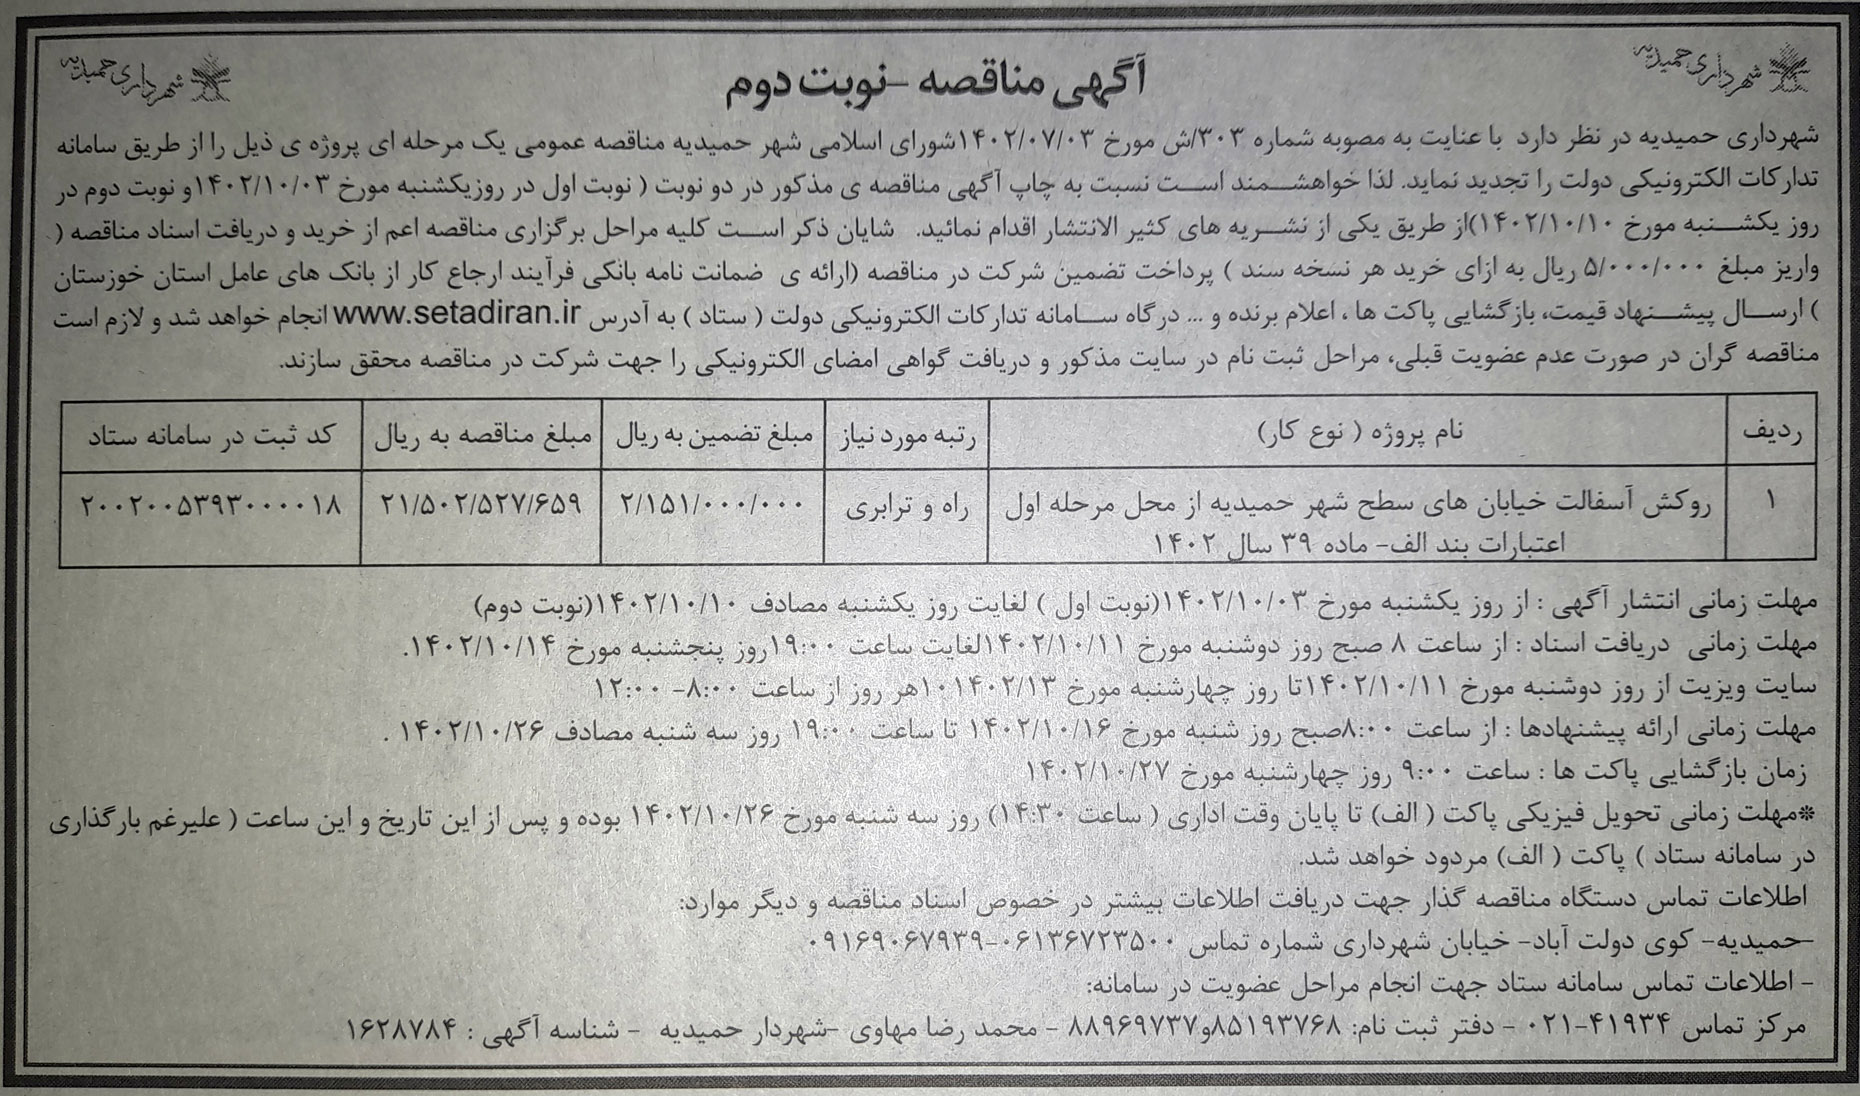 شهرداری حمیدیه
شهرداری حمیدیه
آگهی مناقصه -نوبت دوم
شهرداری حمیدیه در نظر دارد با عنایت به مصوبه شماره ۳۰۳/ش مورخ ۱۴۰۲/۰۷/۰۳شورای اسلامی شهر حمیدیه مناقصه عمومی یک مرحله ای پروژه ی ذیل را از طریق سامانه
تدارکات الکترونیکی دولت را تجدید نماید. لذا خواهشمند است نسبت به چاپ آگهی مناقصه ی مذکور در دو نوبت ( نوبت اول در روزیکشنبه مورخ ۱۴۰۲/۱۰/۰۳و نوبت دوم در
روز یکشنبه مورخ ۱۴۰۲/۱۰/۱۰)از طریق یکی از نشریه های کثیر الانتشار اقدام نمائید. شایان ذکر است کلیه مراحل برگزاری مناقصه اعم از خرید و دریافت اسناد مناقصه (
واریز مبلغ ۵/۰۰۰/۰۰۰ ریال به ازای خرید هر نسخه سند ) پرداخت تضمین شرکت در مناقصه (ارائه ی ضمانت نامه بانکی فرآیند ارجاع کار از بانک های عامل استان خوزستان
) ارسال پیشنهاد قیمت، بازگشایی پاکت ها ، اعلام برنده و ... درگاه سامانه تدارکات الکترونیکی دولت ( ستاد ) به آدرس www.setadiran.ir انجام خواهد شد و لازم است
مناقصه گران در صورت عدم عضویت قبلی، مراحل ثبت نام در سایت مذکور و دریافت گواهی امضای الکترونیکی را جهت شرکت در مناقصه محقق سازند.
ردیف	نام پروژه ( نوع کار)	رتبه مورد نیاز	مبلغ تضمین به ریال	مبلغ مناقصه به ریال	کد ثبت در سامانه ستاد
۱	روکش آسفالت خیابان های سطح شهر حمیدیه از محل مرحله اول	راه و ترابری	۲/۱۵۱/۰۰۰/۰۰۰	۲۱/۵۰۲/۵۲۷/۶۵۹	۲۰۰۲۰۰۵۳۹۳۰۰۰۰۱۸
اعتبارات بند الف- ماده ۳۹ سال ۱۴۰۲
مهلت زمانی انتشار آگهی : از روز یکشنبه مورخ ۱۴۰۲/۱۰/۰۳(نوبت اول ) لغایت روز یکشنبه مصادف ۱۴۰۲/۱۰/۱۰(نوبت دوم)
مهلت زمانی دریافت اسناد : از ساعت ۸ صبح روز دوشنبه مورخ ۱۴۰۲/۱۰/۱۱لغایت ساعت ۱۹:۰۰روز پنجشنبه مورخ ۱۴۰۲/۱۰/۱۴.
سایت ویزیت از روز دوشنبه مورخ ۱۴۰۲/۱۰/۱۱تا روز چهارشنبه مورخ ۱۰۱۴۰۲/۱۳هر روز از ساعت ۸:۰۰- ۱۲:۰۰
مهلت زمانی ارائه پیشنهادها : از ساعت ۸:۰۰صبح روز شنبه مورخ ۱۴۰۲/۱۰/۱۶ تا ساعت ۱۹:۰۰ روز سه شنبه مصادف ۱۴۰۲/۱۰/۲۶ .
زمان بازگشایی پاکت ها : ساعت ۹:۰۰ روز چهارشنبه مورخ ۱۴۰۲/۱۰/۲۷
*مهلت زمانی تحویل فیزیکی پاکت ( الف) تا پایان وقت اداری ( ساعت ۱۴:۳۰) روز سه شنبه مورخ ۱۴۰۲/۱۰/۲۶ بوده و پس از این تاریخ و این ساعت ( علیرغم بارگذاری
در سامانه ستاد ) پاکت ( الف) مردود خواهد شد.
اطلاعات تماس دستگاه مناقصه گذار جهت دریافت اطلاعات بیشتر در خصوص اسناد مناقصه و دیگر موارد:
-حمیدیه- کوی دولت آباد- خیابان شهرداری شماره تماس ۰۶۱۳۶۷۲۳۵۰۰-۰۹۱۶۹۰۶۷۹۳۹
- اطلاعات تماس سامانه ستاد جهت انجام مراحل عضویت در سامانه:
مرکز تماس ۴۱۹۳۴-۰۲۱ - دفتر ثبت نام: ۸۵۱۹۳۷۶۸و۸۸۹۶۹۷۳۷ - محمد رضا مهاوی -شهردار حمیدیه - شناسه آگهی : ۱۶۲۸۷۸۴